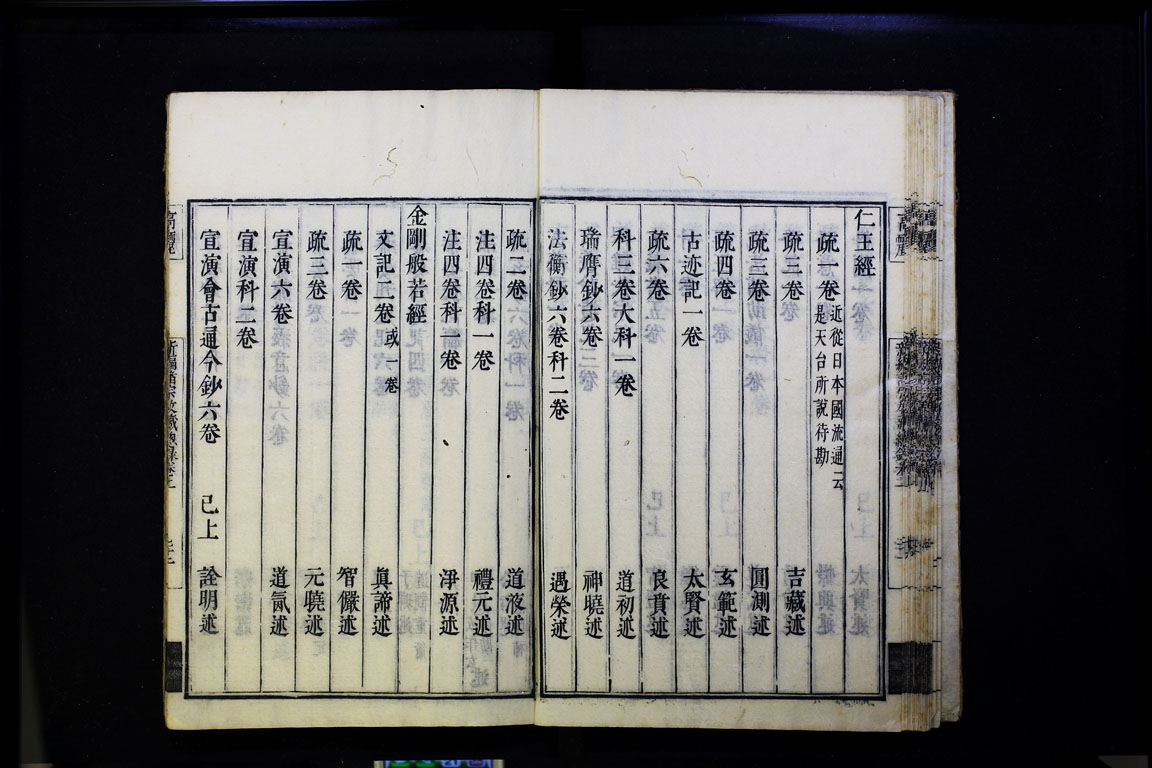 仁王經
疏一卷近從日本國流通云是天台所說待勘
疏三卷 吉藏述
疏三卷 圓測述
疏四卷 玄範述
古迹記一卷 太賢述
疏六卷 良賁述
科三卷大科一卷 道初述
瑞膺鈔六卷 神曉述
法衡鈔六卷科二卷 遇榮述
疏二卷 道液述
注四卷科一卷 禮元述
注四卷科一卷 淨源述
金剛般若經
文記二卷或一卷 眞諦述
疏一卷 智儼述
疏三卷 元曉述
宣演六卷 道氤述
宣演科二卷
宣演會古通今鈔六卷 已上 詮明述